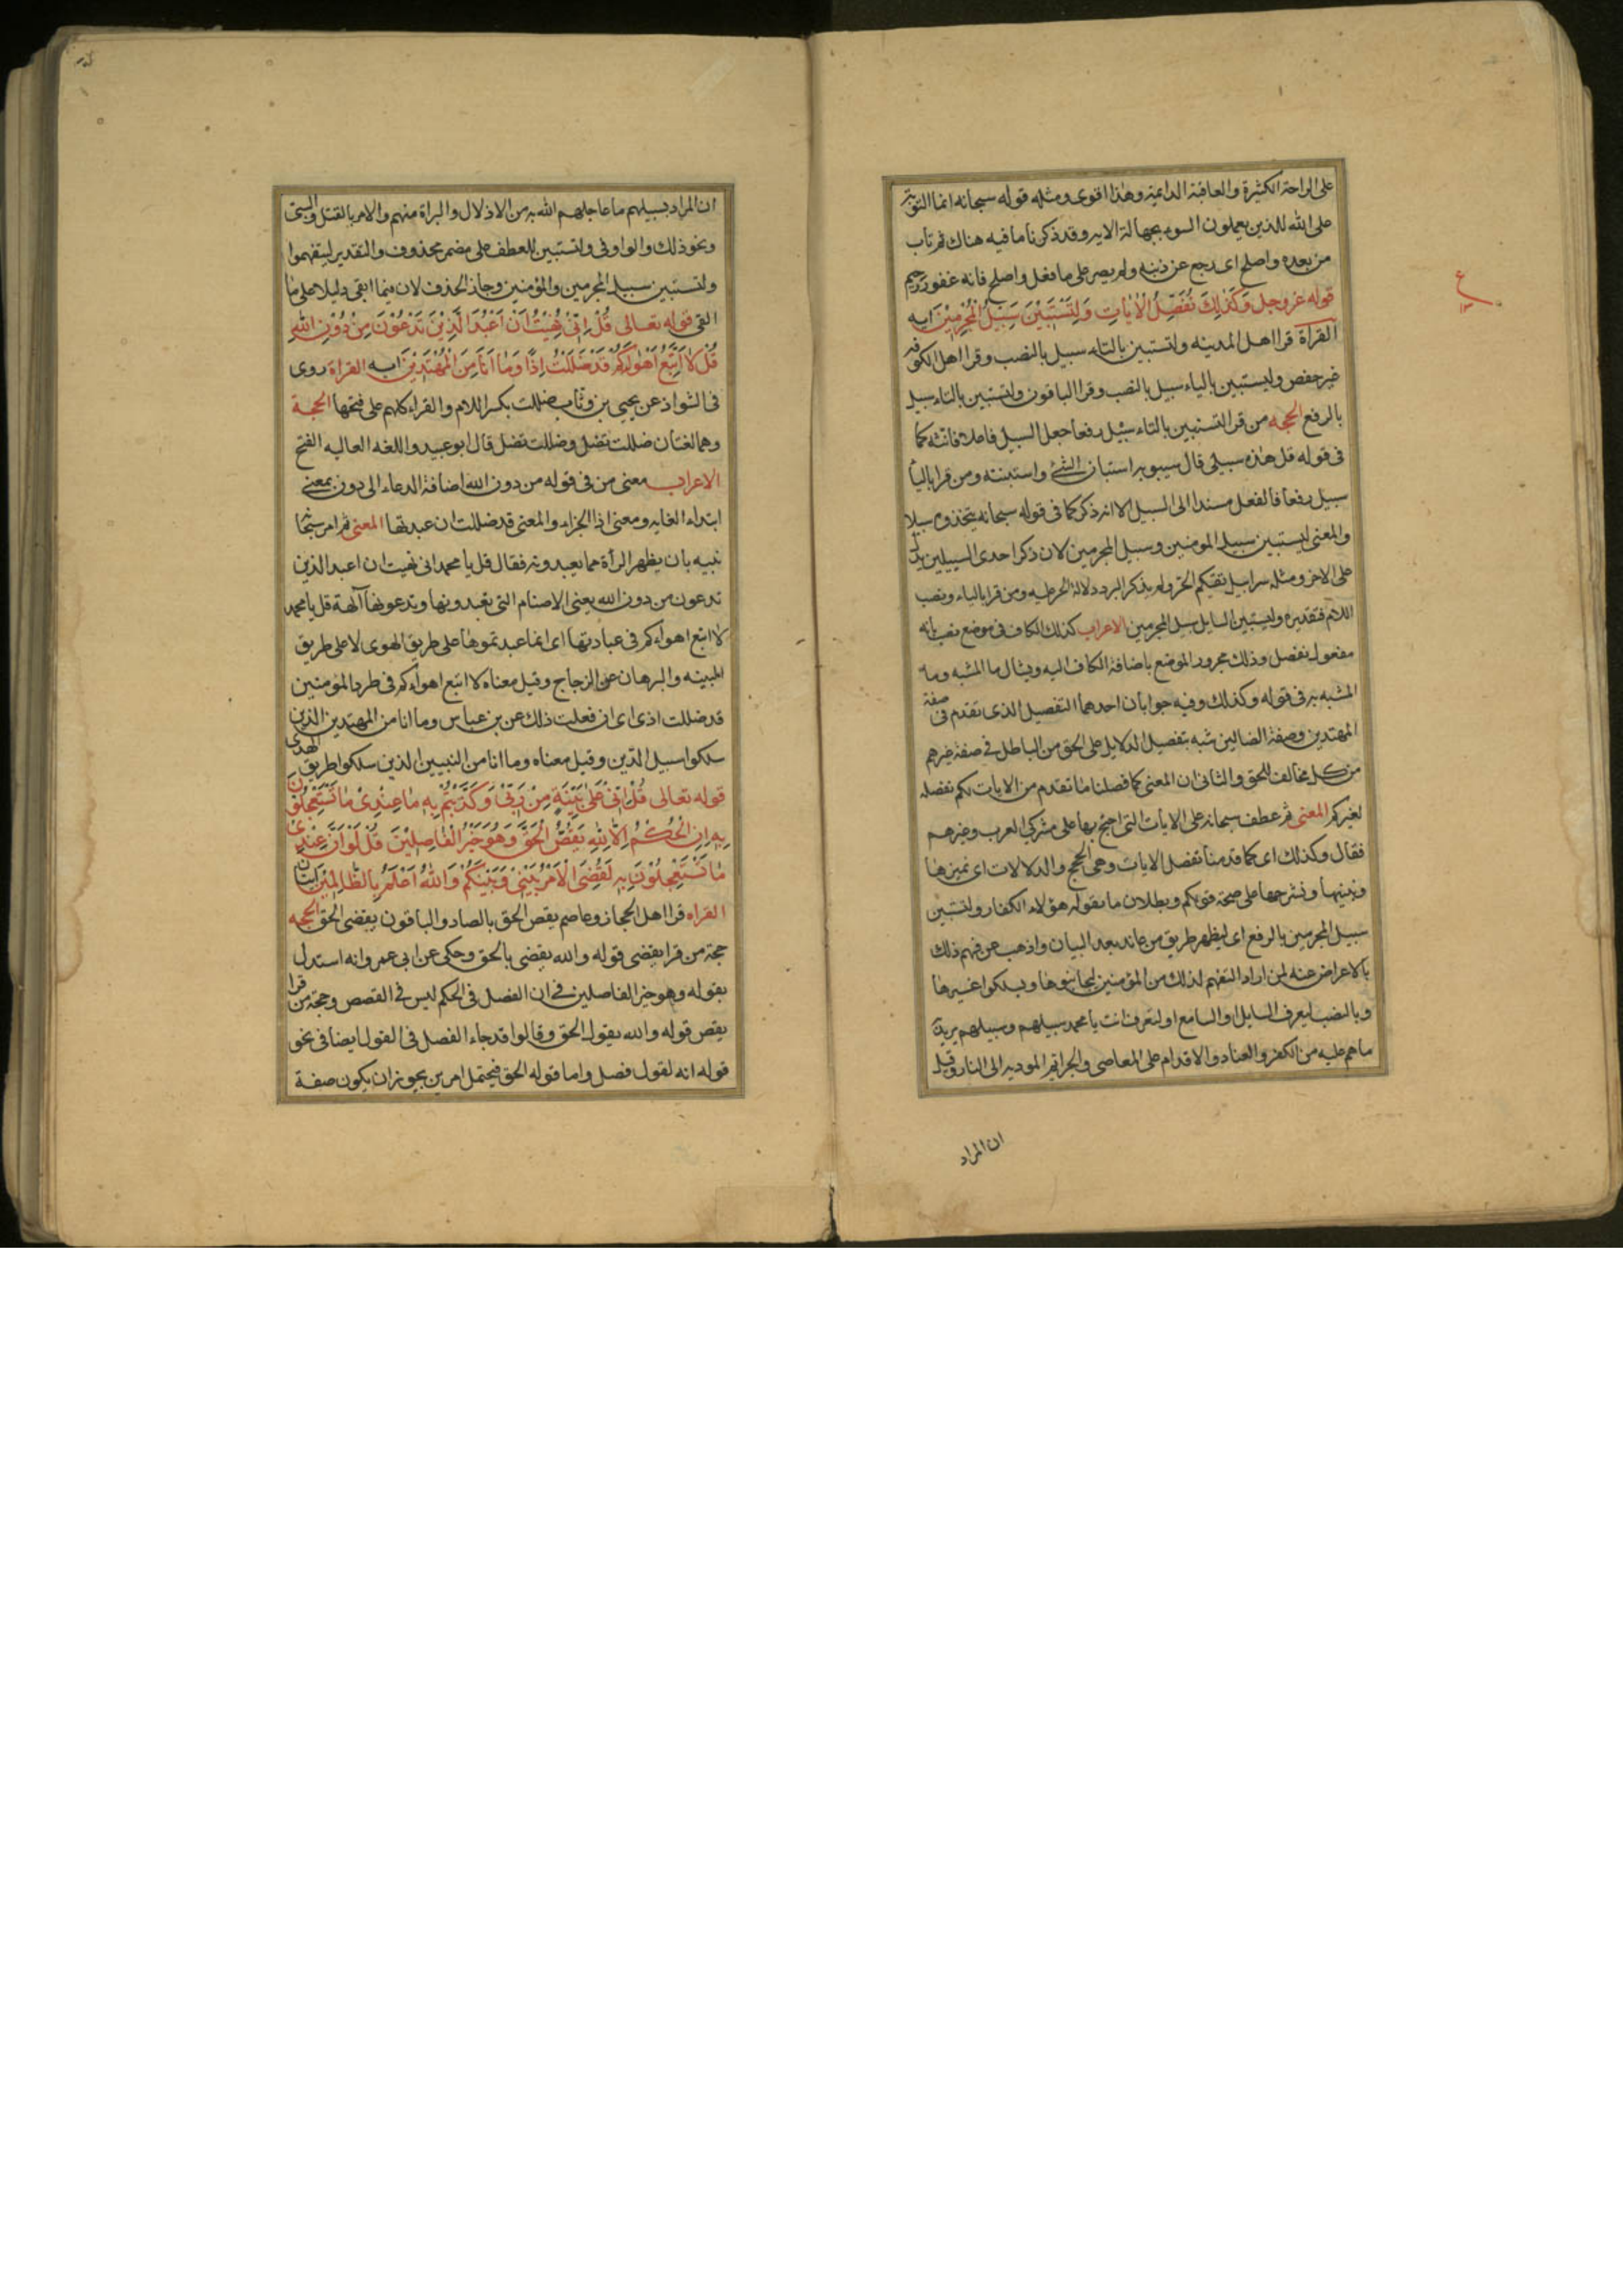 على الراحة الكثيرة والعافية الدايمة وهذا اقوى ومثله قوله سبحانه انما التوبة
على الله للذين يعملون السوء بجهالة الايه وقد ذكرنا ما فيه هناك ثم تاب
من بعده واصلح اى رجع عن ذنبه ولم يصر على ما فعل واصلح فانه غفور رحيم
قوله عز وجل وَكَذٰلِكَ نُفَصِّلُ الْاٰيٰاتِ وَلِتَسْتَبٖيْنَ سَبٖيْلُ الْمُجْرِمٖيْنَ ايه
القراة قرا اهل المدينه ولتستبين بالتاء سبيل بالنصب وقرا اهل الكوفه
غير حفص وليستبين بالياء سبيل بالنصب وقرا الباقون ولتستبين بالتاء سبيل
بالرفع الحجه من قرا لتستبين بالتاء سبيل رفعا جعل السبيل فاعلا فانثه كما
فى قوله قل هذه سبيلى قال سيبويه استبان الشئ واستبنته ومن قرا باليا
سبيل رفعا فالفعل مسندا الى السبيل الا انه ذكر كما فى قوله سبحانه يتخذوه سبيلا
والمعنى ليستبين سبيل المومنين وسبيل المجرمين لان ذكر احدى السبيلين يدل
على الاخر ومثله سرابيل تقيكم الحر ولم يذكر البرد دلالة الحر عليه ومن قرا بالياء ونصب
اللام فتقديره وليستبين السايل سبيل المجرمين الاعراب كذلك الكاف فى موضع نصب بانه
مفعول نفصل وذلك مجرور الموضع باضافة الكاف اليه ويسال ما المشبه وما
المشبه به فى قوله وكذلك وفيه جوابان احدهما التفصيل الذى تقدم فى صفة
المهتدين وصفة الضالين شبه بتفصيل الدلايل على الحق من الباطل فى صفة غيرهم
من كل مخالف للحق والثانى ان المعنى كما فصلنا ما تقدم من الايات لكم نفصله
لغيركم المعنى ثم عطف سبحانه على الايات التى احتج بها على مشركى العرب وغيرهم
فقال وكذلك اى كما قدمنا نفصل الايات وهى الحجج والدلالات اى نميزها
ونبينها ونشرحها على صحة قولكم وبطلان ما يقوله هؤلاء الكفار ولتستبين
سبيل المجرمين بالرفع اى ليظهر طريق من عاند بعد البيان واذهب عن فهم ذلك
بالاعراض عنه لمن اراد التفهم لذلك من المؤمنين ليجانبوها ويسلكوا غيرها
وبالنصب ليعرف السايل او السامع او لتعرف انت يا محمد سبيلهم وسبيلهم يريد
ما هم عليه من الكفر والعناد والاقدام على المعاصى والجرايم الموديه الى النار وقيل
ان المراد
ان المراد بسبيلهم ما عاجلهم الله به من الاذلال والبراة منهم والامر بالقتل والسبى
ونحو ذلك والواو فى ولتستبين للعطف على مضمر محذوف والتقدير ليتفهموا
ولتستبين سبيل المجرمين والمؤمنين وجاز الحذف لان فيما ابقى دليلا على ما
القى قوله تعالى قُلْ اِنّٖىْ نُهٖيْتُ اَنْ اَعْبُدَ الَّذٖيْنَ تَدْعُوْنَ مِنْ دُوْنِ اللّٰهِ
قُلْ لٰا اَتَّبِعُ اَهْوٰاۤءَكُمْ قَدْ ضَلَلْتُ اِذًا وَمٰا اَنَا مِنَ الْمُهْتَدٖيْنَ ايه القراة روى
فى الشواذ عن يحيى بن وثاب ضللت بكسر اللام والقراء كلهم على فتحها الحجة
وهما لغتان ضللت تضل وضللت تضل قال ابو عبيد واللغه العاليه الفتح
الاعراب معنى من فى قوله من دون الله اضافة الدعاء الى دون بمعنى
ابتداء الغايه ومعنى اذا الجزاء والمعنى قد ضللت ان عبدتها المعنى ثم امر سبحا
نبيه بان يظهر البرأة مما يعبدونه فقال قل يا محمد انى نهيت ان اعبد الذين
تدعون من دون الله يعنى الاصنام التى يعبدونها وتدعونها آلهة قل يا محمد
لا اتبع اهواءكم فى عبادتها اى انما عبدتموها على طريق الهوى لا على طريق
البينه والبرهان عن الزجاج وقيل معناه لا اتبع اهواءكم فى طرد المؤمنين
قد ضللت اذى اى ان فعلت ذلك عن بن عباس وما انا من المهتدين الذين
سلكوا سبيل الدّين وقيل معناه وما انا من النبيين الذين سلكوا طريق الهدى
قوله تعالى قُلْ اِنّٖىْ عَلٰى بَيِّنَةٍ مِنْ رَبّٖى وَكَذَّبْتُمْ بِهٖ مٰا عِنْدٖىْ مٰا تَسْتَعْجِلُوْنَ
بِهٖ اِنِ الْحُكْمُ اِلّٰا لِلّٰهِ يَقُصُّ الْحَقَّ وَهُوَ خَيْرُ الْفٰاصِلٖيْنَ قُلْ لَوْ اَنَّ عِنْدٖىْ
مٰا تَسْتَعْجِلُوْنَ بِهٖ لَقُضِىَ الْاَمْرُ بَيْنٖىْ وَبَيْنَكُمْ وَاللّٰهُ اَعْلَمُ بِالظّٰالِمٖيْنَ ايتان
القراه قرا اهل الحجاز وعاصم يقص الحق بالصاد والباقون يقضى الحق الحجه
حجة من قرا يقضى قوله والله يقضى بالحق وحكى عن ابى عمرو انه استدل
بقوله وهو خير الفاصلين فى ان الفصل فى الحكم ليس فى القصص وحجة من قرا
يقص قوله والله يقول الحق وقالوا قد جاء الفصل فى القول ايضا فى نحو
قوله انه لقول فصل واما قوله الحق فيحتمل امرين يجوز ان يكون صفة